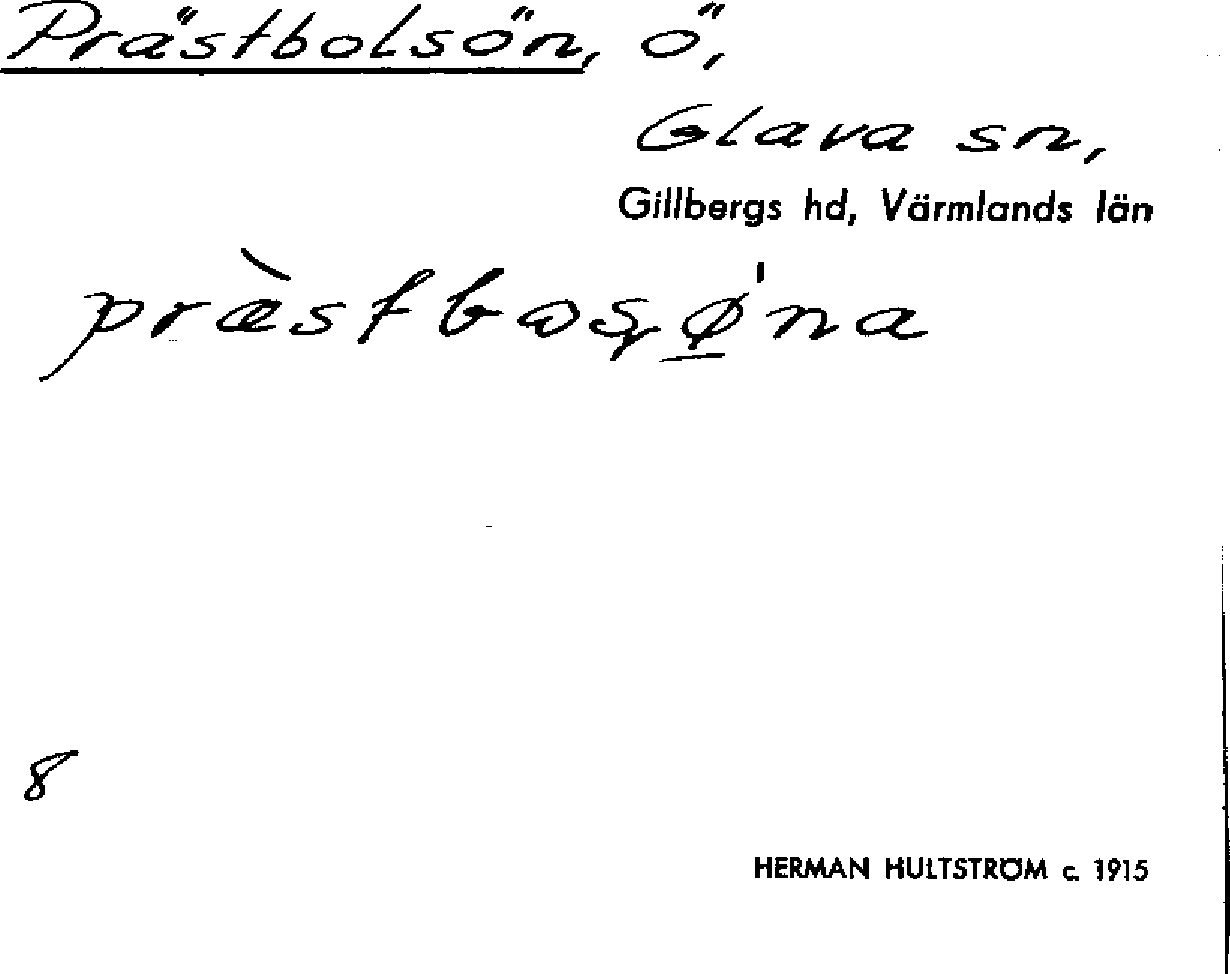 Prästbolsön, ö,
Glava sn,
Gillbergs hd, Värmlands län
8
HERMAN HULTSTRÖM c. 1915